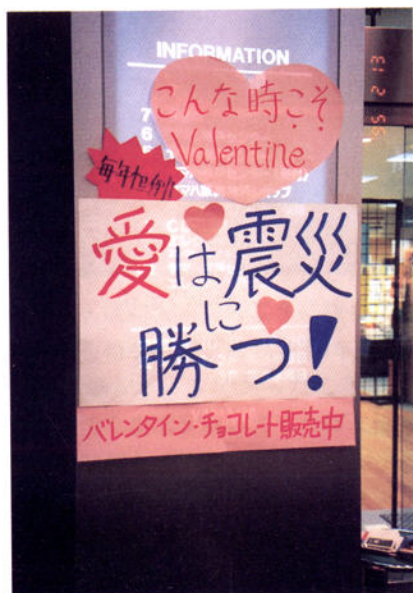 INFORMATION
こんな時こそ
Valentine
毎年恒例!!
愛は震災
に
勝つ!
バレンタイン・チョコレート販売中
95 2 13